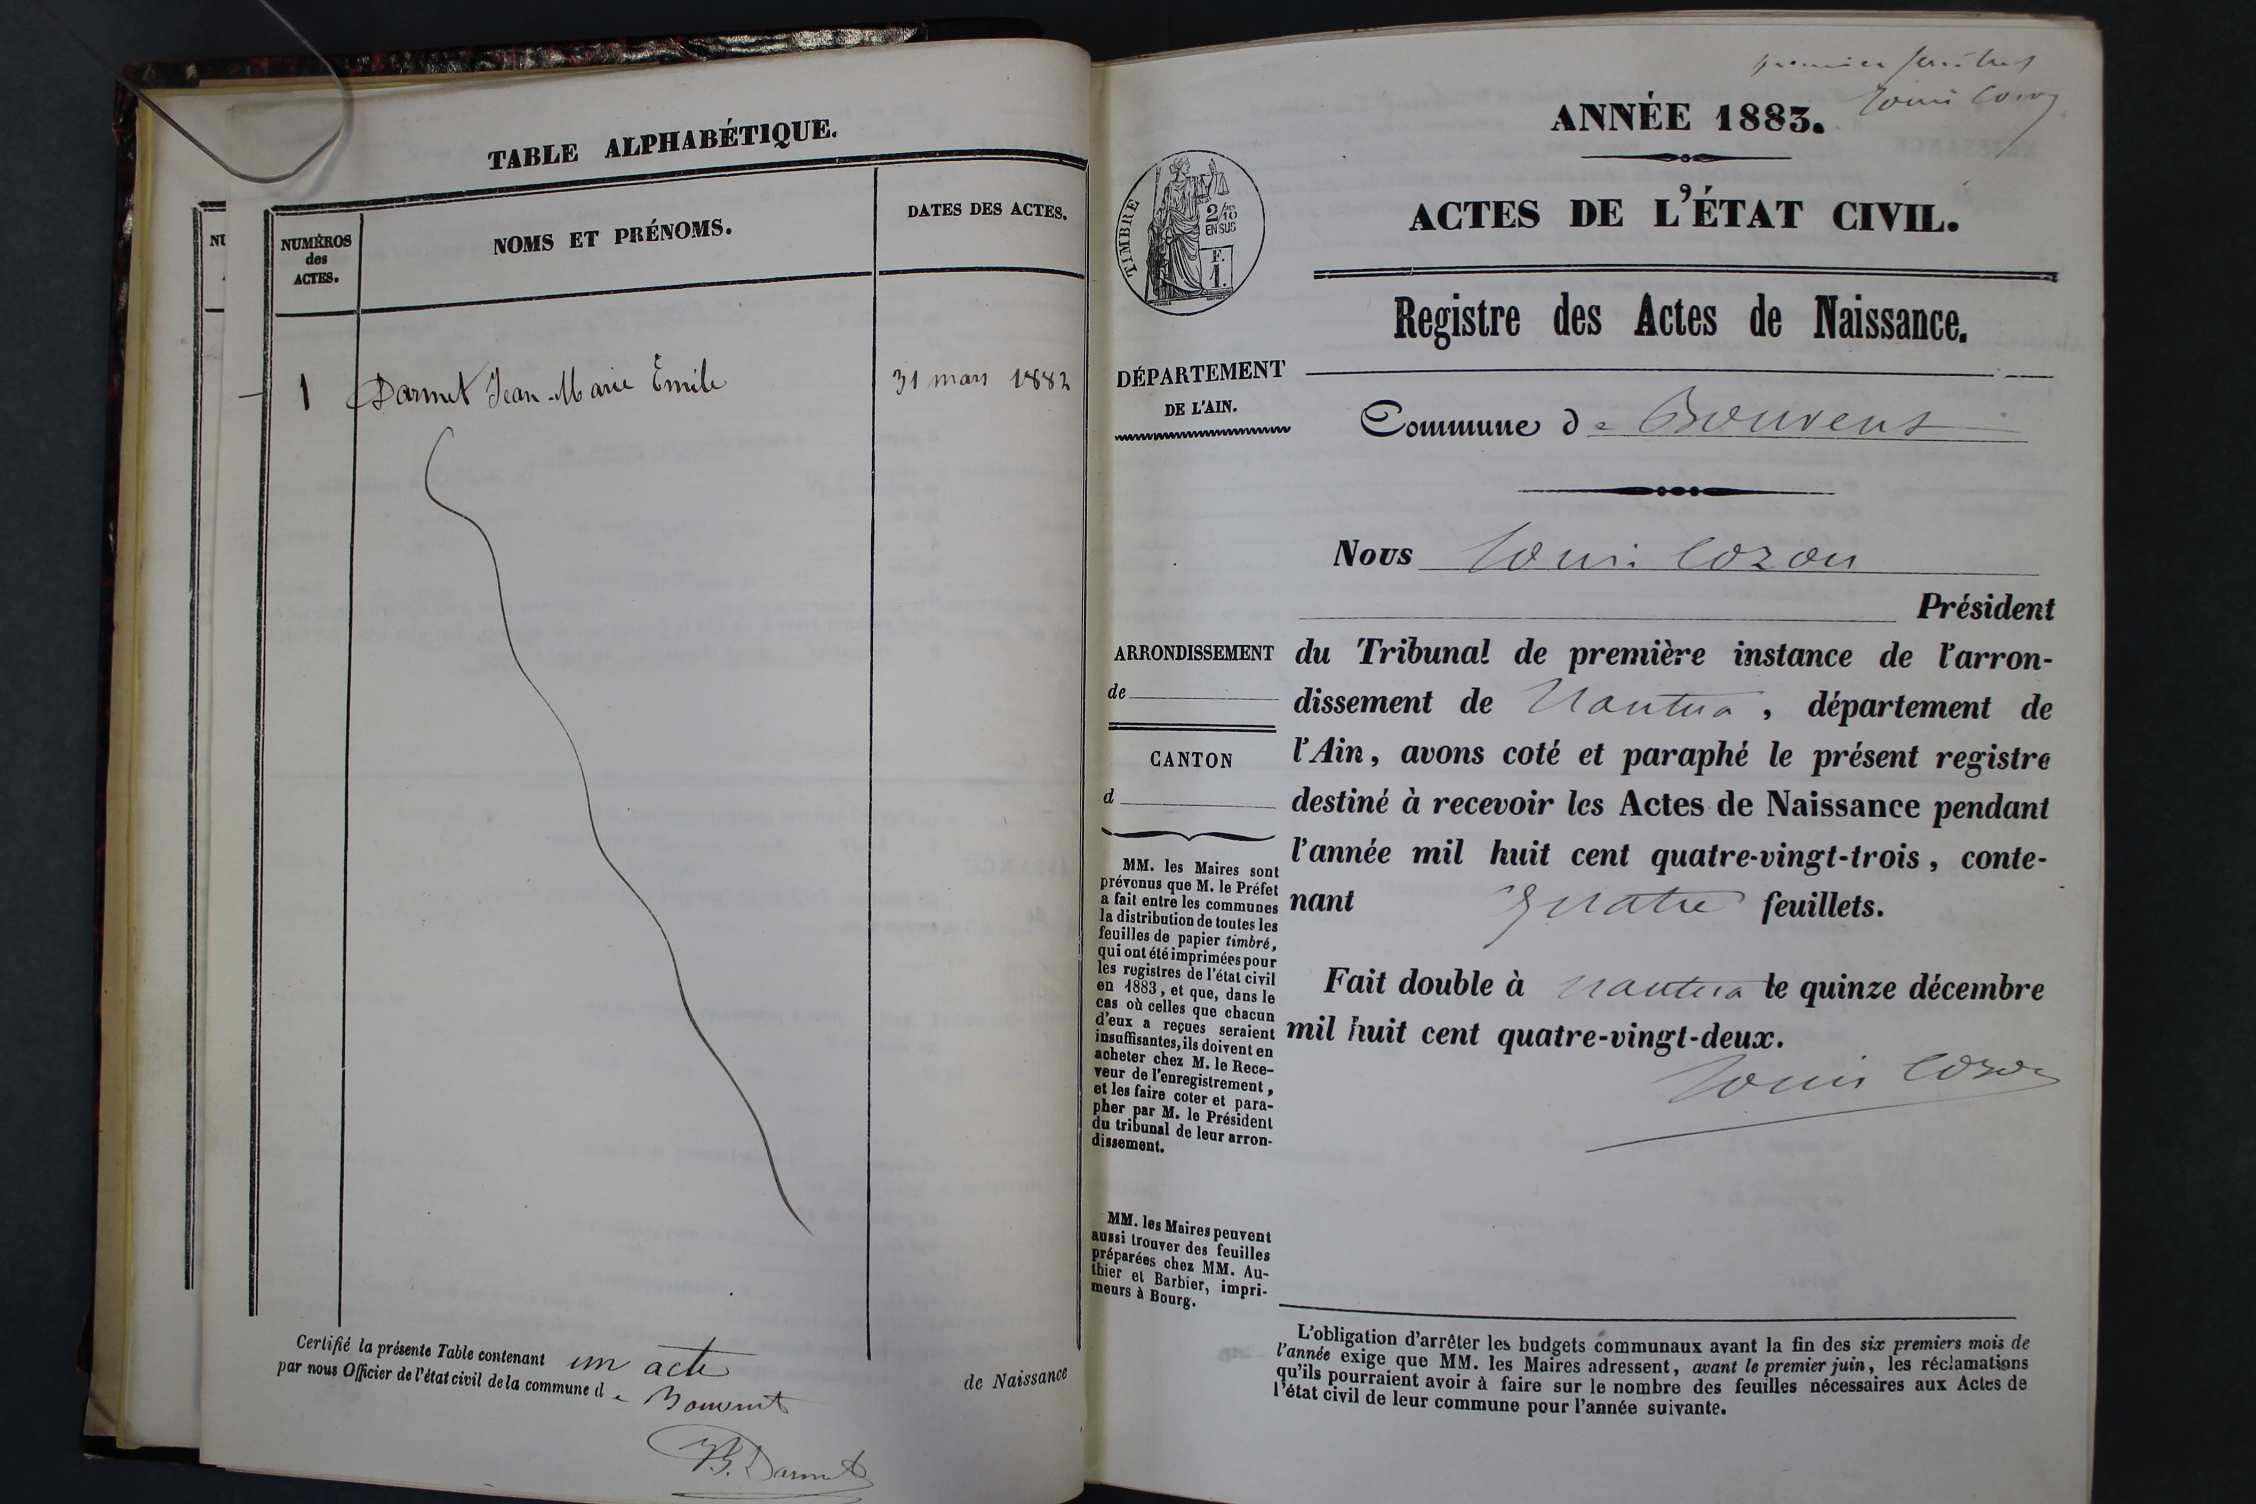 TABLE ALPHABÉTIQUE.
NUMÉROS
des
ACTES.
NOMS ET PRÉNOMS.
DATES DES ACTES.
1 Darmet Jean-Marie Emile 31 mars 1882
Certifié la présente Table contenant un acte de Naissance
par nous Officier de l'état civil de la commune de Bouvent
B. Darmet
premier feuillet
Louis Cozon
ANNÉE 1883.
ACTES DE L'ÉTAT CIVIL.
TIMBRE
2/10
EN SUS
F.
1.
Registre des Actes de Naissance.
DÉPARTEMENT
DE L'AIN.
Commune de Bouvent
Nous Louis Cozon
Président
ARRONDISSEMENT
de
CANTON
d
du Tribunal de première instance de l'arron-
dissement de Nantua, département de
l'Ain, avons coté et paraphé le présent registre
destiné à recevoir les Actes de Naissance pendant
l'année mil huit cent quatre-vingt-trois, conte-
nant quatre feuillets.
Fait double à Nantua le quinze décembre
mil huit cent quatre-vingt-deux.
Louis Cozon
MM. les Maires sont
prévenus que M. le Préfet
a fait entre les communes
la distribution de toutes les
feuilles de papier timbré,
qui ont été imprimées pour
les registres de l'état civil
en 1883, et que, dans le
cas où celles que chacun
d'eux a reçues seraient
insuffisantes, ils doivent en
acheter chez M. le Rece-
veur de l'enregistrement,
et les faire coter et para-
pher par M. le Président
du tribunal de leur arron-
dissement.
MM. les Maires peuvent
aussi trouver des feuilles
préparées chez MM. Au-
thier et Barbier, impri-
meurs à Bourg.
L'obligation d'arrêter les budgets communaux avant la fin des six premiers mois de
l'année exige que MM. les Maires adressent, avant le premier juin, les réclamations
qu'ils pourraient avoir à faire sur le nombre des feuilles nécessaires aux Actes de
l'état civil de leur commune pour l'année suivante.